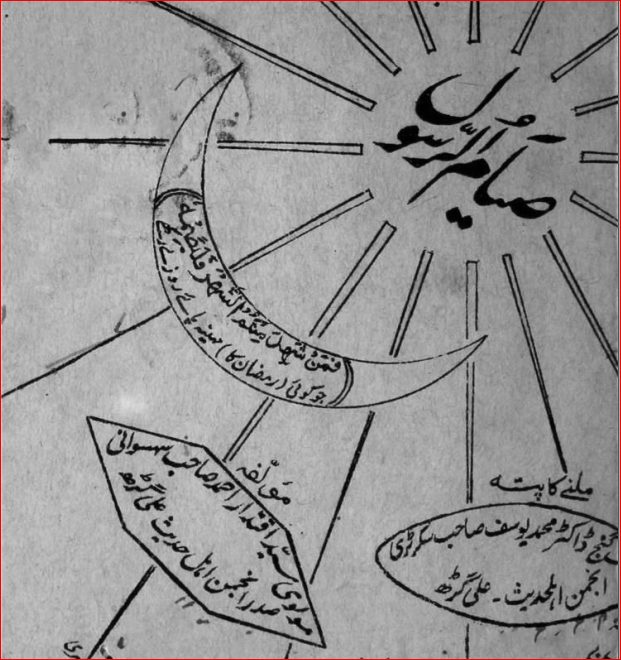 صیام الرسول
فَمَنْ شَهِدَ مِنْكُمُ الشَّهْرَ فَلْيَصُمْهُ
جو کوئی (رمضان کا) مہینہ پائے روزے رکھے
مؤلفہ
مولوی سید اقتدار احمد صاحب سہسوانی
صدر انجمن اہل حدیث علی گڑھ
ملنے کا پتہ
گنج ڈاکٹر محمد یوسف صاحب سکرٹری
انجمن اہلحدیث ۔ علی گڑھ